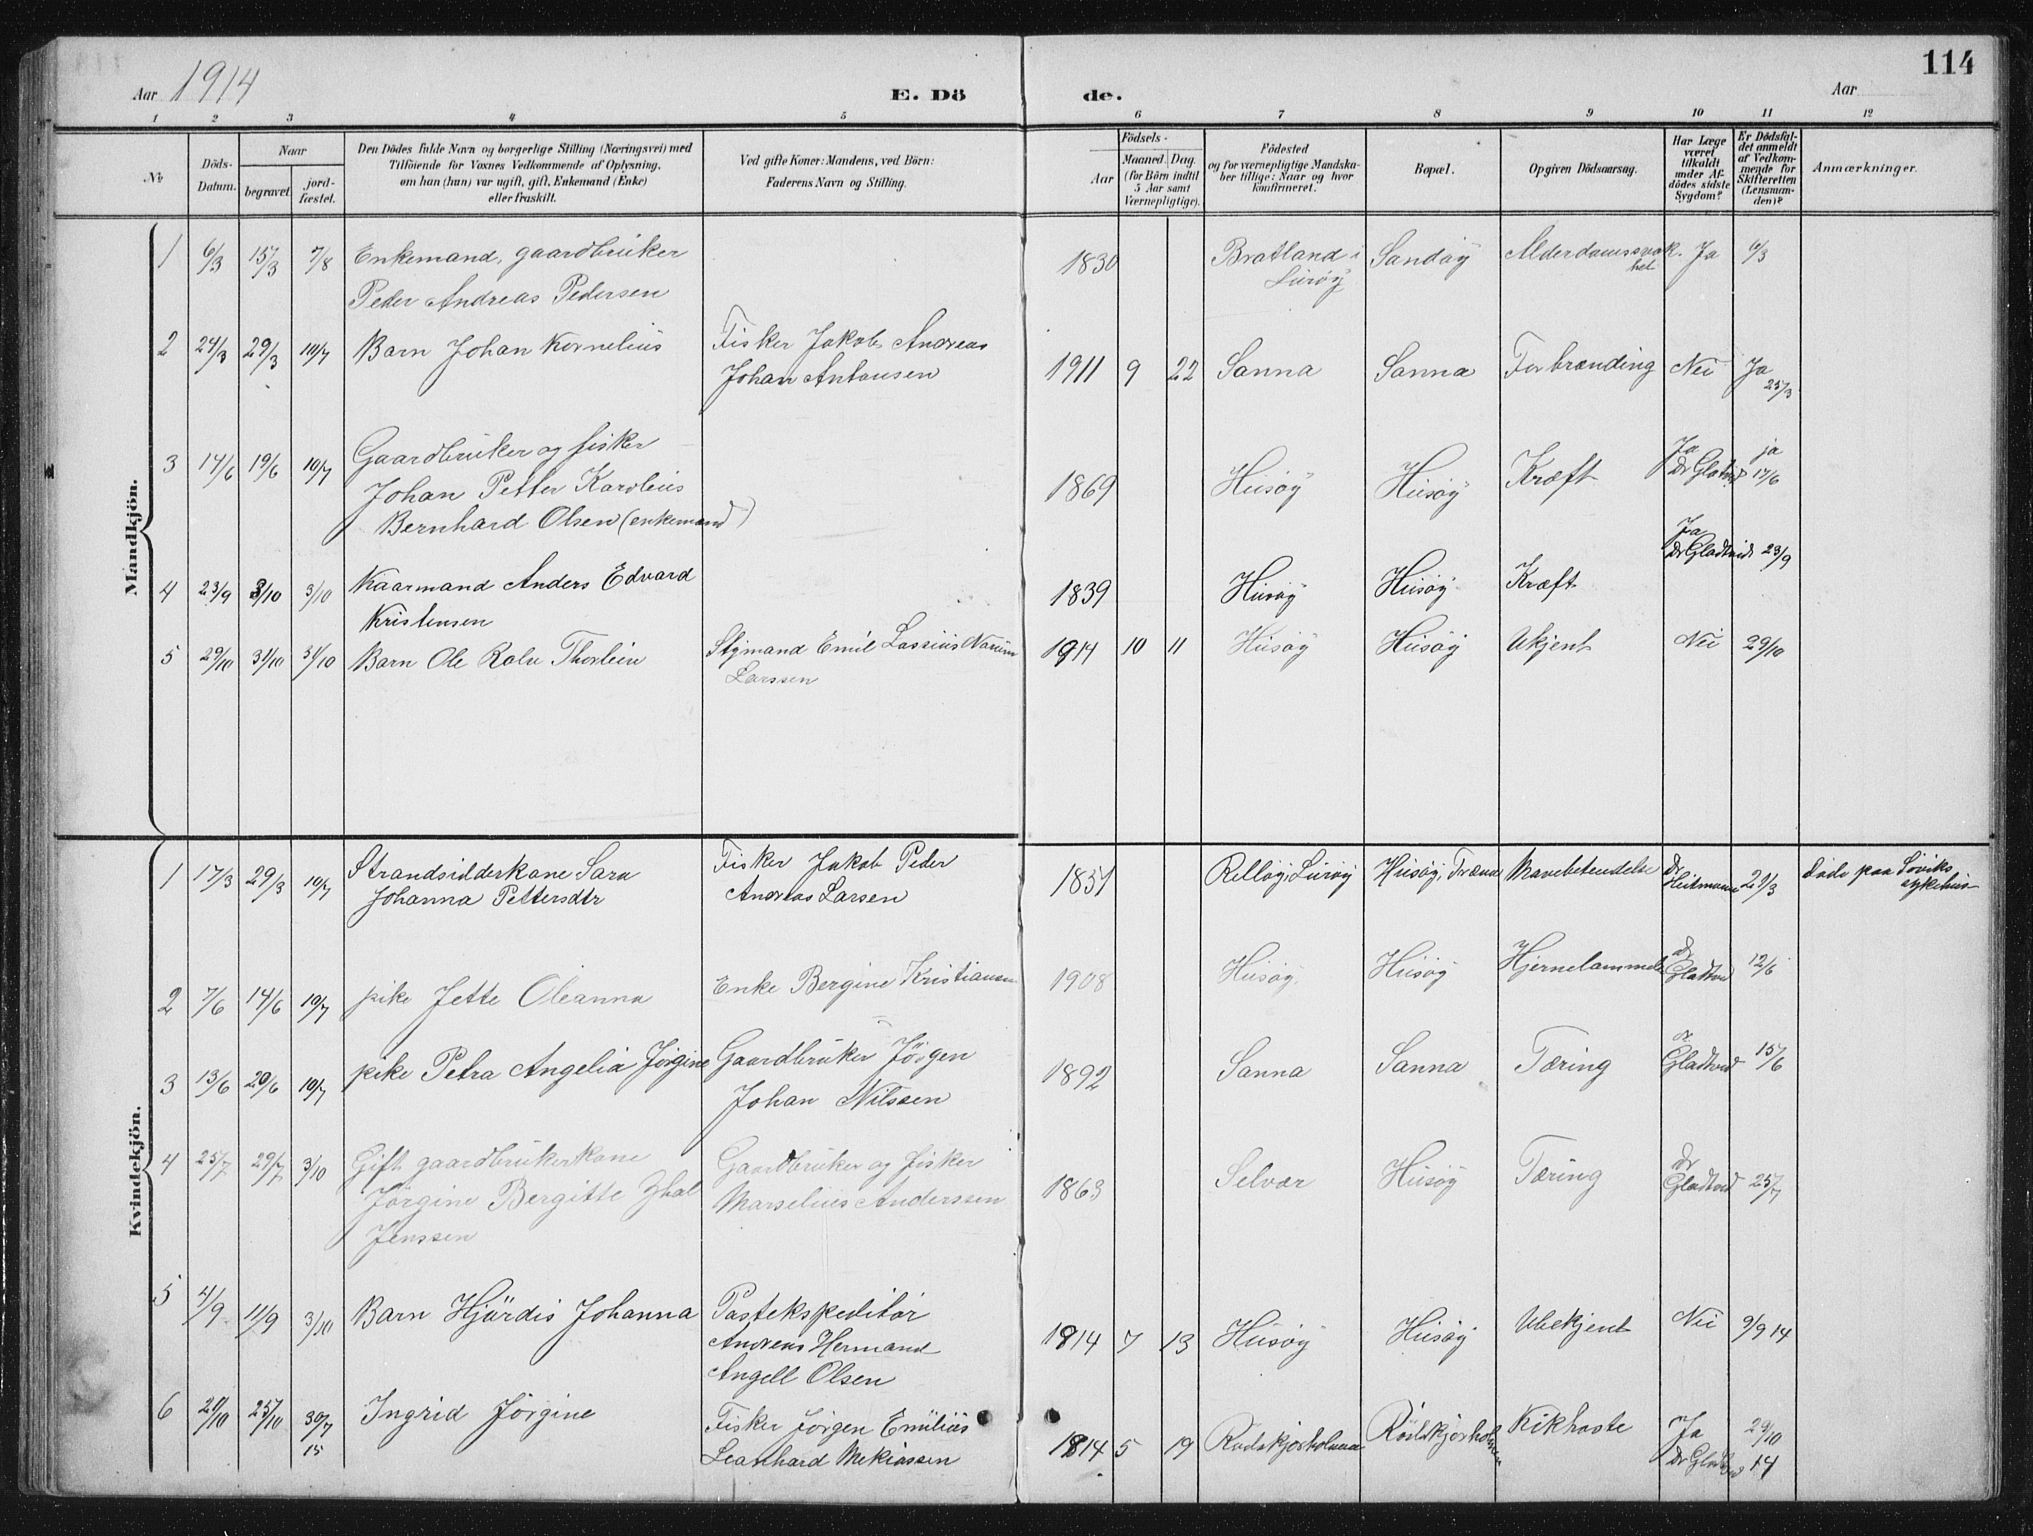 114
Aar 1914
E. Dö
de.
Aar
1 2 3 4 5 6 7 8 9 10 11 12
No
Döds-Datum.
Naar
begravet.
jord-fæstet.
Den Dödes fulde Navn og borgerlige Stilling (Næringsvei) med
Tilföiende for Voxnes Vedkommende af Oplysning,
om han (hun) var ugift, gift, Enkemand (Enke)
eller fraskilt.
Ved gifte Koner: Mandens, ved Börn:
Faderens Navn og Stilling.
Födsels-
Aar
Maaned. Dag.
(for Börn indtil
5 Aar samt
Værnepligtige).
Födested
og for værnepligtige Mandska-
ber tillige: Naar og hvor
konfirmeret.
Bopæl.
Opgiven Dödsaarsag.
Har Læge
været
tilkaldt
under Af-
dödes sidste
Sygdom?
Er Dödsfal-
det anmeldt
af Vedkom-
mende for
Skifteretten
(Lensman-
den)?
Anmærkninger.
Mandkjön.
1 6/3 15/3 7/8 Enkemand, gaardbruker 1830 Bratland i Sandöy Alderdomssvak. Ja 6/3
Peder Andreas Pedersen Luröy het
2 24/3 29/3 10/7 Barn Johan Kornelius Fisker Jakob Andreas
Johan Antonsen 1911 9 22 Sanna Sanna Forbrænding Nei Ja
25/3
3 14/6 19/6 10/7 Gaardbruker og fisker Ja ja
Johan Petter Karolius 1869 Husöy Husöy Kræft Dr 17/6
Bernhard Olsen (enkemand)
Ja
Dr Gladtvid 23/9
4 23/9 3/10 3/10 Kaarmand Anders Edvard 1839 Husöy Husöy Kræft
Kristensen
5 29/10 31/10 31/10 Barn Ole Thorlein Emil Lassius
Larssen 1914 10 11 Husöy Husöy Ukjent Nei 29/10
Kvindekjön.
1 17/3 29/3 10/7 Strandsidderkone Sara Fisker Jakob Peder 1851 Luröy Husöy, Træna Mavebetendelse Dr 29/3 Döde paa Söviks
Johanna Pettersdtr Andreas Larsen sykehus
2 7/6 14/6 10/7 pike Jette Oleanna Enke Bergine Kristiansen 1908 Husöy Husöy Dr 12/6
Gladtvid
3 13/6 20/6 10/7 pike Petra Angelia Jörgine Gaardbruker Jörgen 1892 Sanna Sanna Tæring Gladtvid 15/6
Johan Nilssen
4 25/7 29/7 3/10 Gift gaardbrukerkone Gaardbruker og fisker 1863 Selvær Husöy Tæring Dr
Jörgine Bergitte Marselius Anderssen Gladtvid 25/7
Jenssen
5 4/9 11/9 3/10 Barn Hjördis Johanna Postekspeditör 1814 7 13 Husöy Husöy Ubekjent Nei 9/9 14
Andreas Hermand
Angell Olsen
6 20/10 25/10 30/7 15 Ingrid Jörgine Fisker Jörgen Emilius 1814 5 19 Rödskjærholmen Kikhoste Ja 29/10
Leonhard Mekiassen Dr 14